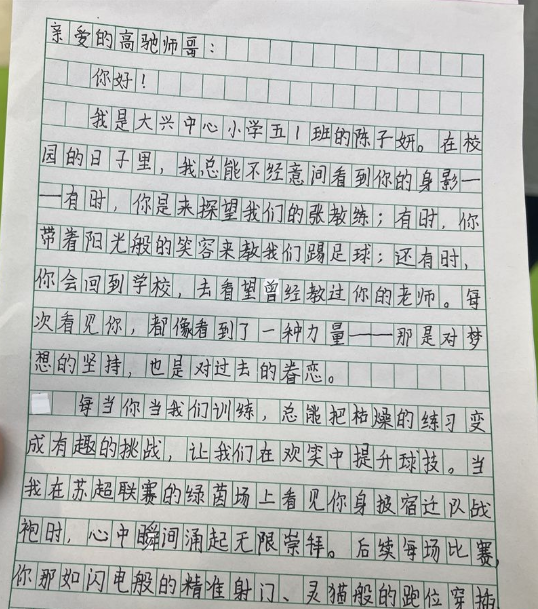 亲爱的高驰师哥：
你好！
我是大兴中心小学五1班的陈子妍。在校
园的日子里，我总能不经意间看到你的身影—
—有时，你是来探望我们的张教练；有时，你
带着阳光般的笑容来教我们踢足球；还有时，
你会回到学校，去看望曾经教过你的老师。每
次看见你，都像看到了一种力量——那是对梦
想的坚持，也是对过去的眷恋。
每当你当我们训练，总能把枯燥的练习变
成有趣的挑战，让我们在欢笑中提升球技。当
我在苏超联赛的绿茵场上看见你身披宿迁队战
袍时，心中瞬间涌起无限崇拜。后续每场比赛，
你那如闪电般的精准射门、灵猫般的跑位穿插